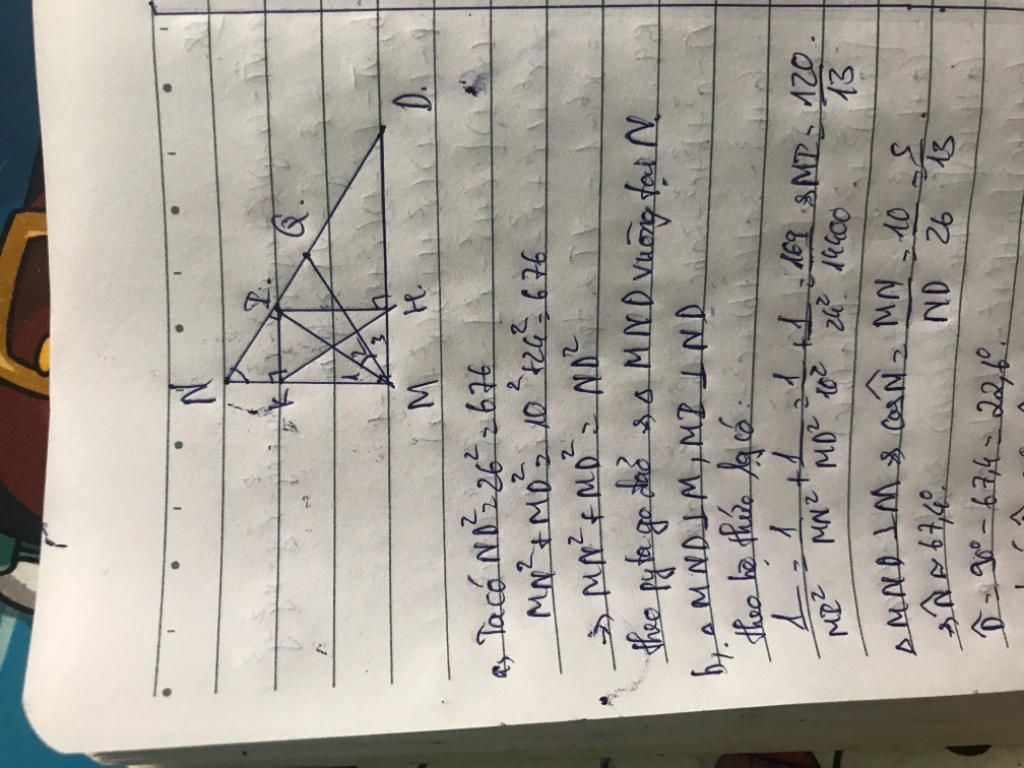 N
I.
Q.
K
1 2 3
M
H.
D.
a, Ta có ND² = 26² = 676
MN² + MD² = 10² + 24² = 676
=> MN² + MD² = ND²
theo pytago đảo => △ MND vuông tại N
b, △ MND ⊥ M, MI ⊥ ND
theo hệ thức lg có.
1/MI² = 1/MN² + 1/MD² = 1/10² + 1/24² = 169/14400 => MI = 120/13.
△ MND ⊥ M => cosN̂ = MN/ND = 10/26 = 5/13.
=> N̂ ≈ 67,4°.
D̂ = 90° - 67,4 = 22,6°